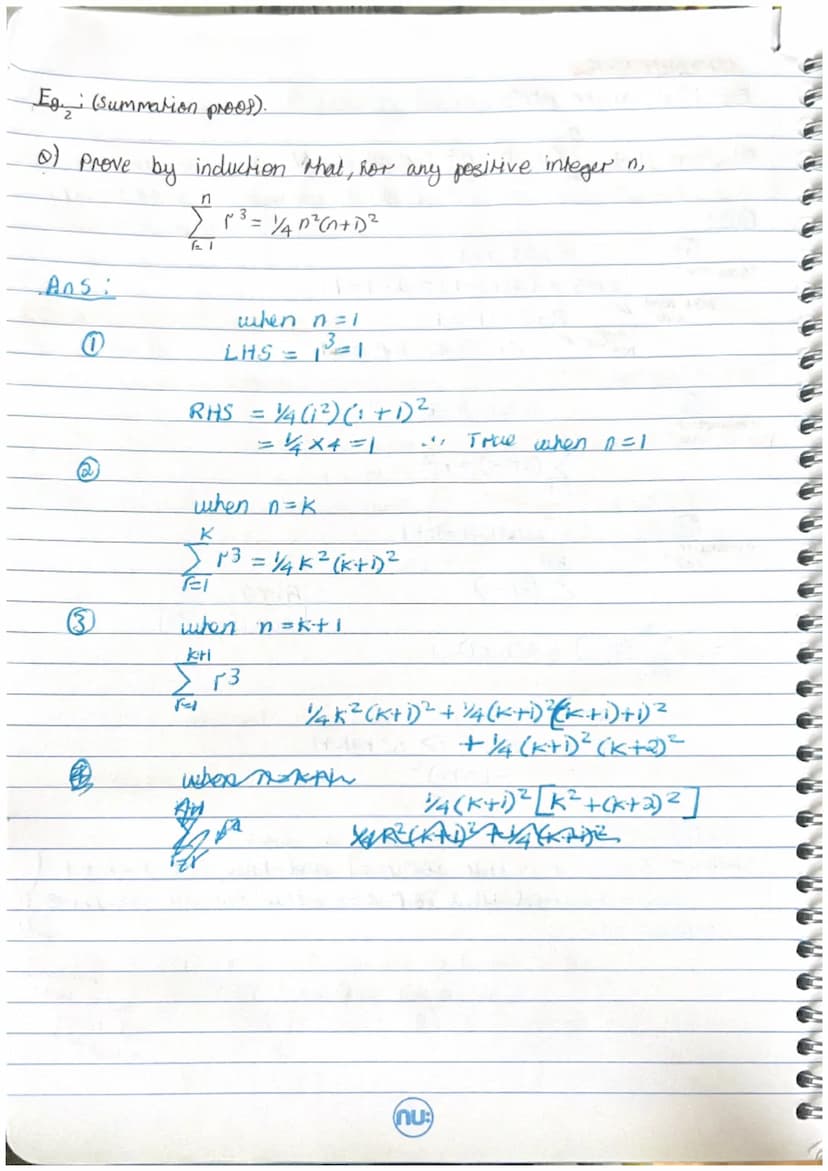 Eg.2 : (Summation proof).
Q) Prove by induction that, for any positive integer n,
n
∑ r³ = ¼ n²(n+1)²
r=1
Ans :
when n=1
① LHS = 1³=1
RHS = ¼(1²)(1+1)²
= ¼ ×4 =1 ∴ True when n=1
②
when n=k
k
∑ r³ = ¼ k²(k+1)²
r=1
③ when n=k+1
k+1
∑ r³
r=1
¼k²(k+1)² + ¼(k+1)²((k+1)+1)²
+ ¼(k+1)²(k+2)²
¼(k+1)²[k²+(k+2)²]
nu: